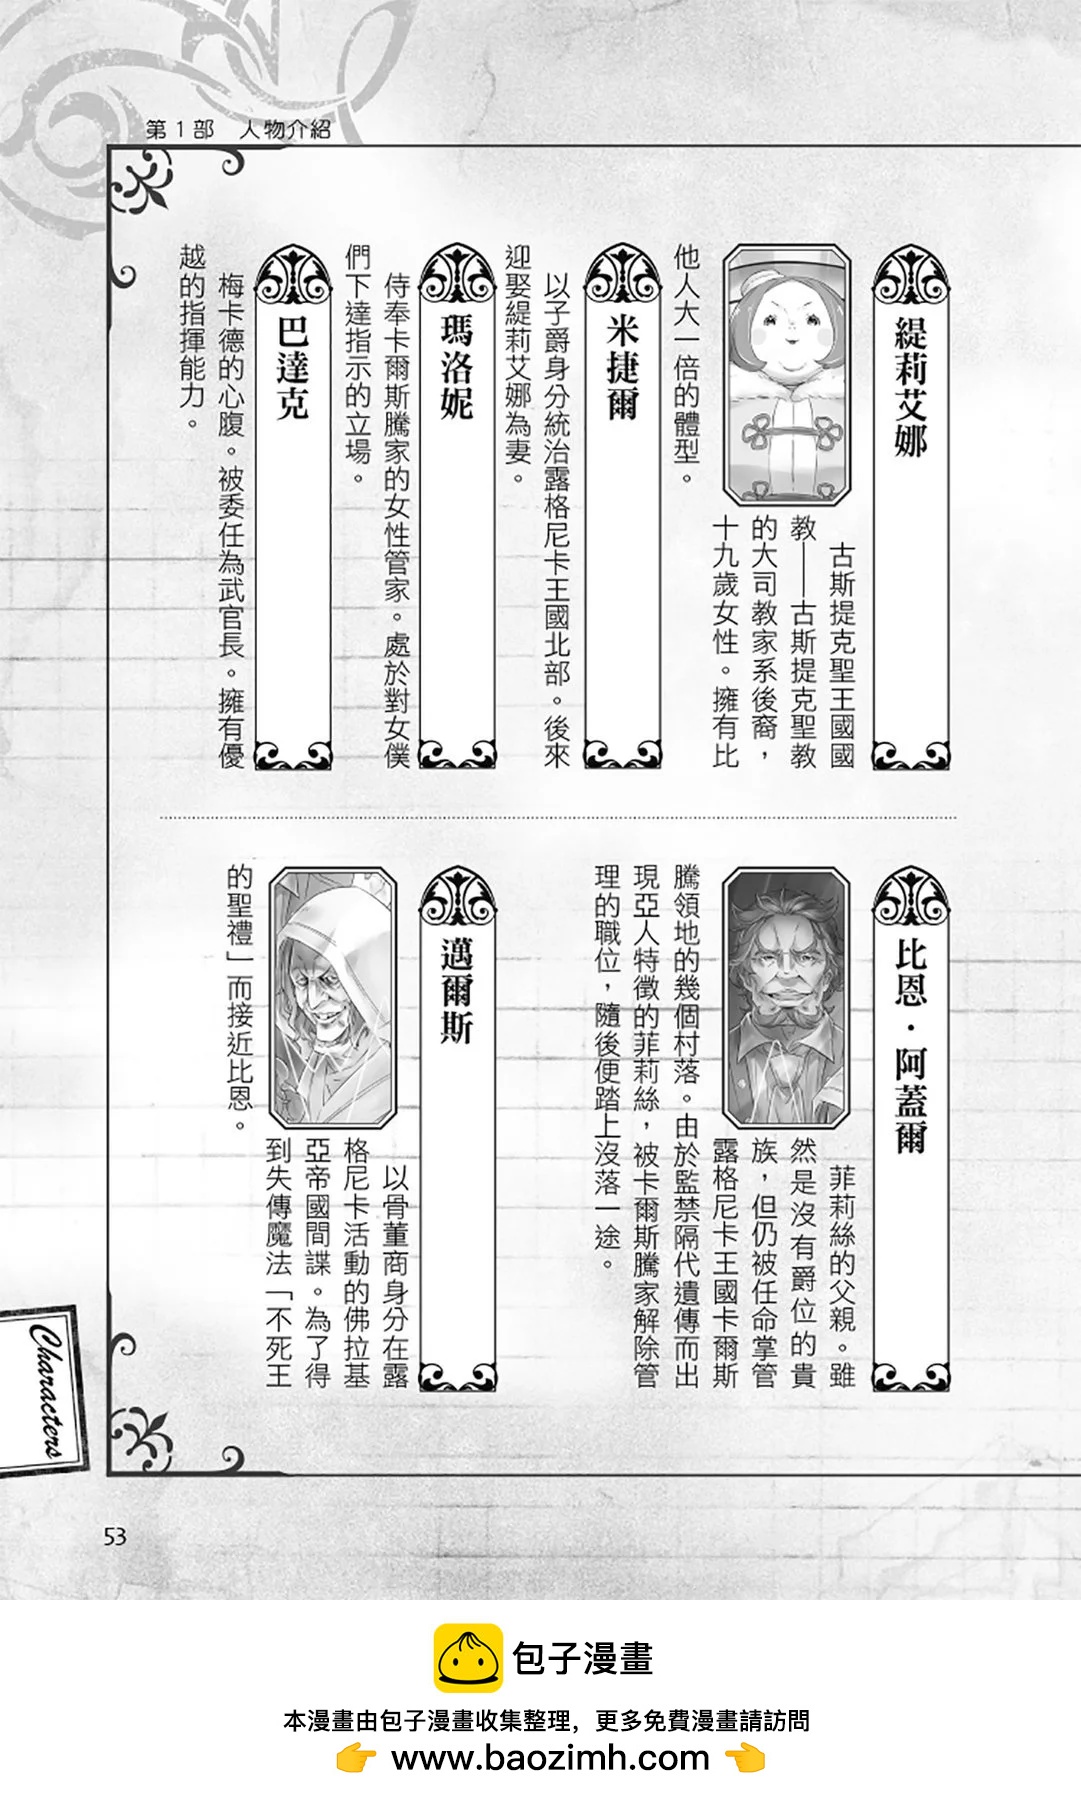 第1部 人物介紹
緹莉艾娜
古斯提克聖王國國
教——古斯提克聖教
的大司教家系後裔，
十九歲女性。擁有比
他人大一倍的體型。
米捷爾
以子爵身分統治露格尼卡王國北部。後來
迎娶緹莉艾娜為妻。
瑪洛妮
侍奉卡爾斯騰家的女性管家。處於對女僕
們下達指示的立場。
巴達克
梅卡德的心腹。被委任為武官長。擁有優
越的指揮能力。
比恩·阿蓋爾
菲莉絲的父親。雖
然是沒有爵位的貴
族，但仍被任命掌管
露格尼卡王國卡爾斯
騰領地的幾個村落。由於監禁隔代遺傳而出
現亞人特徵的菲莉絲，被卡爾斯騰家解除管
理的職位，隨後便踏上沒落一途。
邁爾斯
以骨董商身分在露
格尼卡活動的佛拉基
亞帝國間諜。為了得
到失傳魔法「不死王
的聖禮」而接近比恩。
Characters
53
包子漫畫
本漫畫由包子漫畫收集整理，更多免費漫畫請訪問
👉 www.baozimh.com 👈